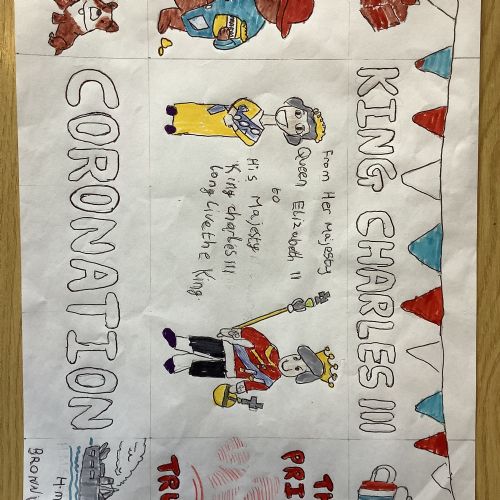 KING CHARLES III
From Her Majesty
Queen Elizabeth II
to
His Majesty
King Charles III
Long Live the King.
TH
PRI
TRU
CORONATION
Hm